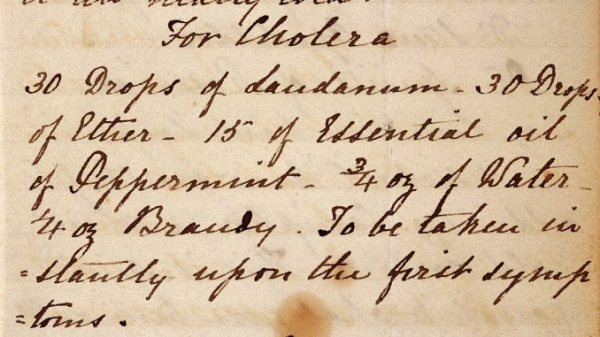 For Cholera
30 Drops of Laudanum - 30 Drops
of Ether - 15 of Essential oil
of Peppermint - 3/4 oz of Water -
1/4 oz Brandy. To be taken in
=stantly upon the first symp
=toms.